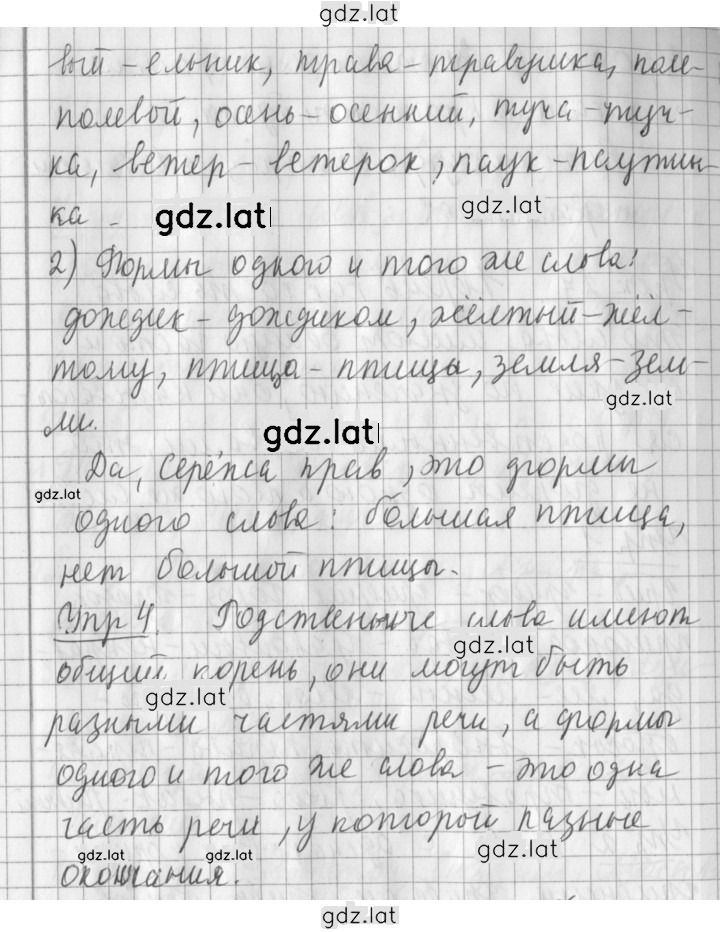 gdz.lat
вый - ельник, трава - травушка, поле-
полевой, осень - осенний, туча - туч-
ка, ветер - ветерок, паук - паутин-
ка.
gdz.lat
gdz.lat
2) Формы одного и того же слова:
дождик - дождиком, жёлтый - жёл-
тому, птица - птицы, земля - зем-
ли.
gdz.lat
gdz.lat
Да, Серёжа прав, это формы
gdz.lat
одного слова: большая птица,
нет большой птицы.
Упр 4. Родственные слова имеют
gdz.lat
общий корень, они могут быть
gdz.lat
разными частями речи, а формы
одного и того же слова - это одна
часть речи, у которой разные
gdz.lat
gdz.lat
gdz.lat
окончания.
gdz.lat